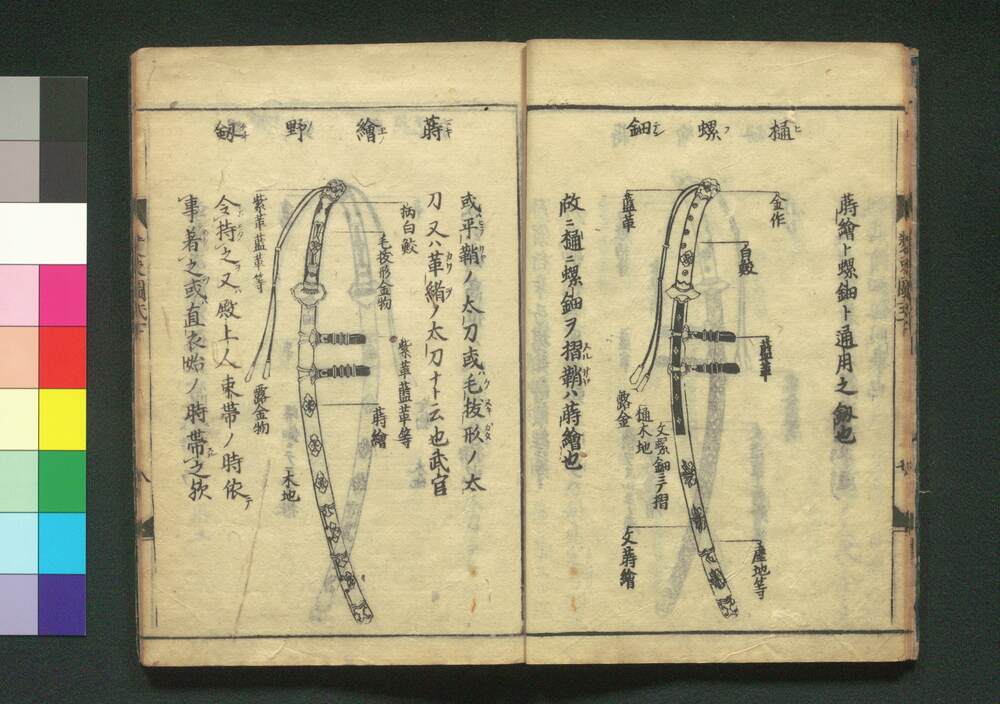 樋螺鈿
蒔繪ト螺鈿ト通用之劔也
金作
白鮫
藍革
藍革
露金
樋木地
文螺鈿ニテ摺
塵地等
文蒔繪
故ニ樋ニ螺鈿ヲ摺鞘ハ蒔繪也
蒔繪野劔
或平鞘ノ太刀或毛抜形ノ太
刀又ハ革緒ノ太刀ナト云也武官
柄白鮫
毛抜形金物
紫革藍革等
蒔繪
木地
紫革藍革等
露金物
令持之又殿上人束帯ノ時依
事着之或直衣始ノ時帯之歟